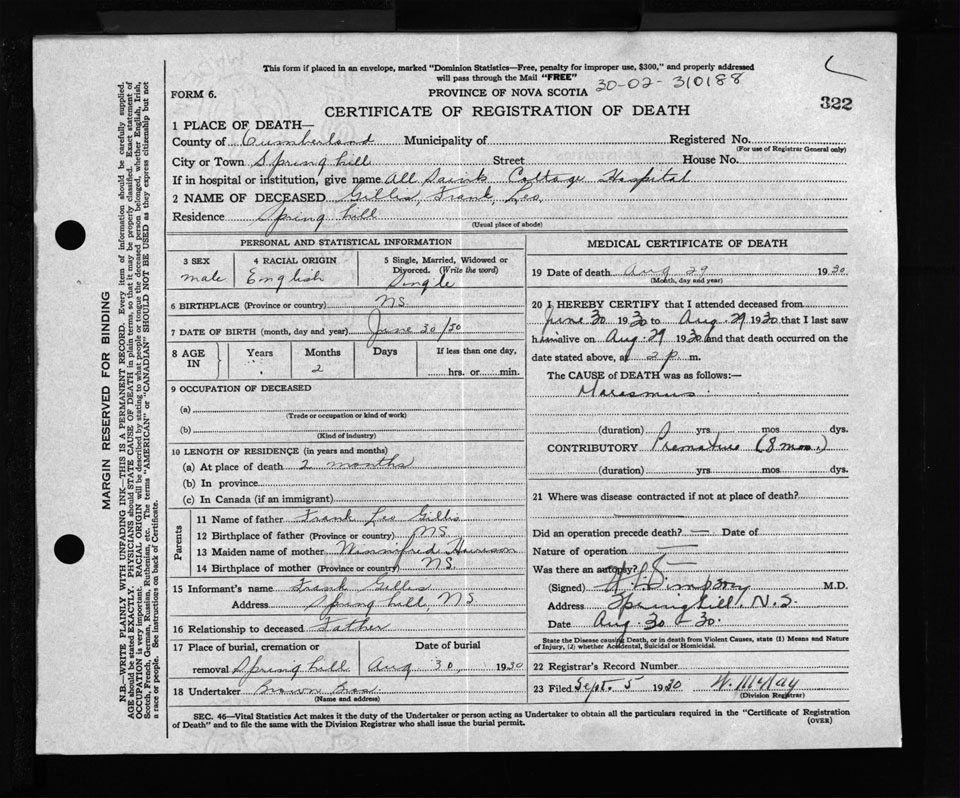 This form if placed in an envelope, marked "Dominion Statistics—Free, penalty for improper use, $300," and properly addressed
will pass through the Mail "FREE"
30-02-310188
FORM 6.
PROVINCE OF NOVA SCOTIA
322
CERTIFICATE OF REGISTRATION OF DEATH
1 PLACE OF DEATH—
County of Cumberland Municipality of Registered No.
(For use of Registrar General only)
City or Town Springhill Street House No.
If in hospital or institution, give name All Saints Cottage Hospital
2 NAME OF DECEASED Gillis, Frank Leo.
Residence Spring hill
(Usual place of abode)
PERSONAL AND STATISTICAL INFORMATION
3 SEX 4 RACIAL ORIGIN 5 Single, Married, Widowed or
Divorced. (Write the word)
male English Single
6 BIRTHPLACE (Province or country) N.S.
7 DATE OF BIRTH (month, day and year) June 30/30
8 AGE IN Years Months Days If less than one day,
2 hrs. or min.
9 OCCUPATION OF DECEASED
(a)
(Trade or occupation or kind of work)
(b)
(Kind of industry)
10 LENGTH OF RESIDENCE (in years and months)
(a) At place of death 2 months
(b) In province
(c) In Canada (if an immigrant)
Parents
11 Name of father Frank Leo Gillis
12 Birthplace of father (Province or country) N.S.
13 Maiden name of mother Winnifred Harrison
14 Birthplace of mother (Province or country) N.S.
15 Informant's name Frank Gillis
Address Spring hill, N.S.
16 Relationship to deceased Father
17 Place of burial, cremation or Date of burial
removal Springhill Aug 30, 1930
18 Undertaker Brown Bros
(Name and address)
MEDICAL CERTIFICATE OF DEATH
19 Date of death Aug 29 1930
(Month, day and year)
20 I HEREBY CERTIFY that I attended deceased from
June 30 1930 to Aug. 29 1930 that I last saw
him alive on Aug. 29 1930 and that death occurred on the
date stated above, at 2 p. m.
The CAUSE of DEATH was as follows:—
Marasmus
(duration) yrs. mos. dys.
CONTRIBUTORY Premature (8 mos.)
(duration) yrs. mos. dys.
21 Where was disease contracted if not at place of death?
Did an operation precede death? — Date of
Nature of operation
Was there an autopsy?
(Signed) Simpson M.D.
Address Springhill, N.S.
Date Aug. 30 - 30.
State the Disease causing Death, or in death from Violent Causes, state (1) Means and Nature
of Injury, (2) whether Accidental, Suicidal or Homicidal.
22 Registrar's Record Number
23 Filed Sept. 5 1930 W. McKay
(Division Registrar)
SEC. 46—Vital Statistics Act makes it the duty of the Undertaker or person acting as Undertaker to obtain all the particulars required in the "Certificate of Registration
of Death" and to file the same with the Division Registrar who shall issue the burial permit.
(OVER)
MARGIN RESERVED FOR BINDING
N.B.—WRITE PLAINLY WITH UNFADING INK—THIS IS A PERMANENT RECORD. Every item of information should be carefully supplied.
AGE should be stated EXACTLY. PHYSICIANS should STATE CAUSE OF DEATH in plain terms, so that it may be properly classified. Exact statement of
OCCUPATION is very important. RACIAL ORIGIN will be described by stating to what people or tongue the deceased person belonged, whether English, Irish,
Scotch, French, German, Russian, Ruthenian, etc. The terms "AMERICAN" or "CANADIAN" SHOULD NOT BE USED as they express citizenship but not
a race or people. See instructions on back of Certificate.